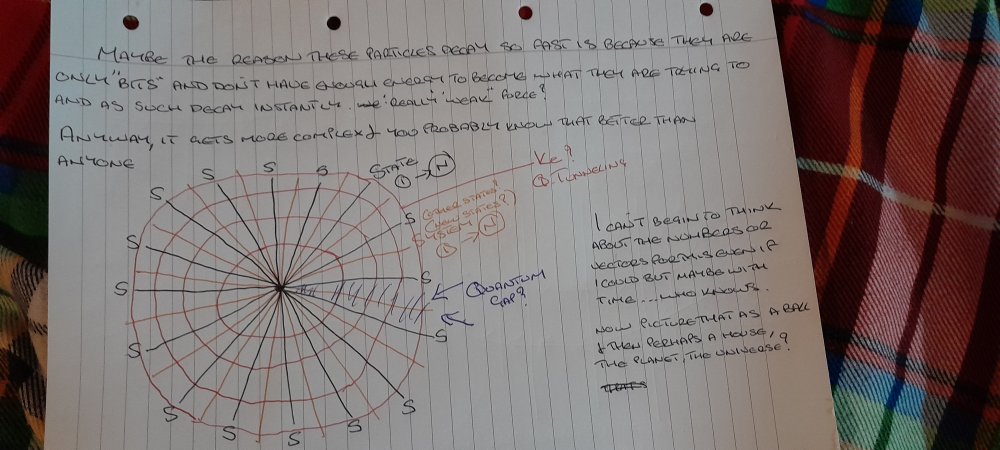 MAYBE THE REASON THESE PARTICLES DECAY SO FAST IS BECAUSE THEY ARE
ONLY "BITS" AND DON'T HAVE ENOUGH ENERGY TO BECOME WHAT THEY ARE TRYING TO
AND AS SUCH DECAY INSTANTLY. REALLY "WEAK" FORCE?
ANYWAY, IT GETS MORE COMPLEX & YOU PROBABLY KNOW THAT BETTER THAN
ANYONE
S
S
S
S
STATE
① → N
Ke?
① TUNNELING
S
S
S
OTHER STATES?
(NEW STATES?)
SYSTEM?
① → N
S
S
S
QUANTUM
GAP?
S
S
S
S
S
S
S
I CAN'T BEGIN TO THINK
ABOUT THE NUMBERS OR
VECTORS FOR THIS EVEN IF
I COULD BUT MAYBE WITH
TIME... WHO KNOWS.
NOW PICTURE THAT AS A BALL
& THEN PERHAPS A HOUSE,
THE PLANET, THE UNIVERSE?